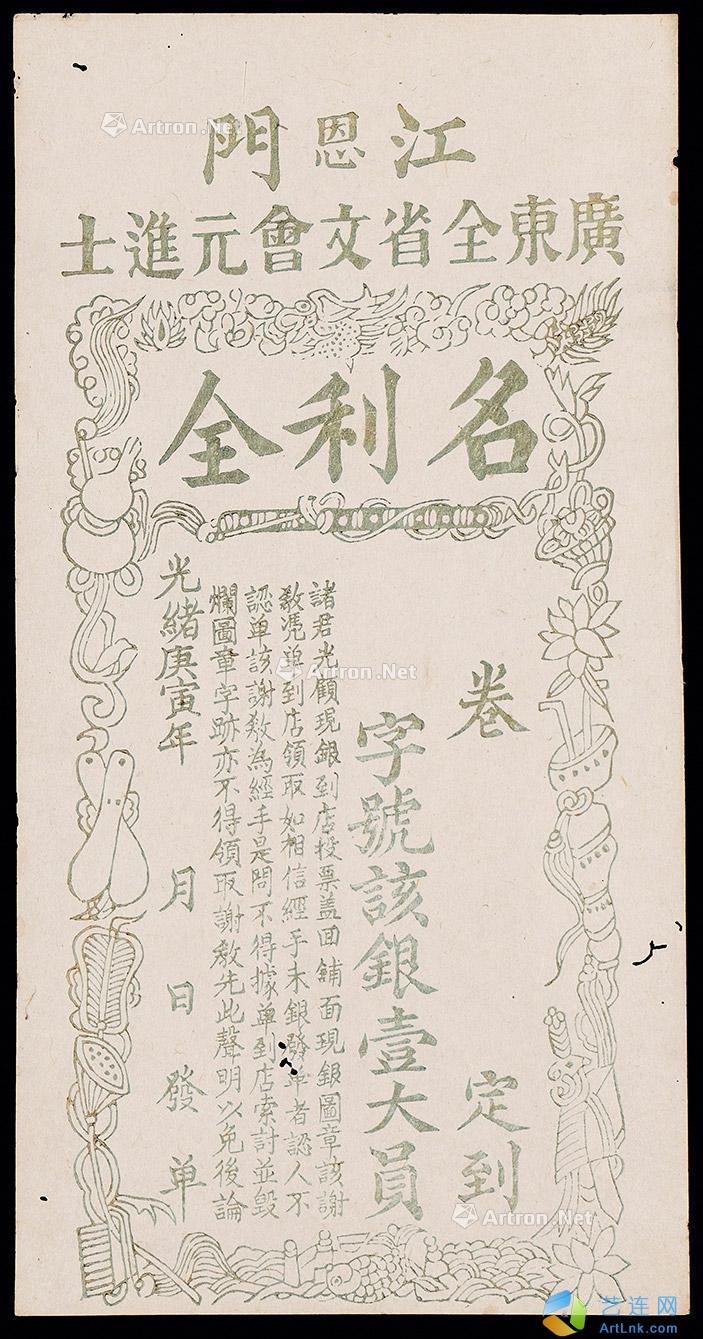 江恩門
廣東全省文會元進士
名利全
卷 定到
字號該銀壹大員
諸君光顧現銀到店投票盖回舖面現銀圖章該謝
敎凴单到店領取如相信經手未銀發单者認人不
認单該謝敎為經手是問不得據单到店索討並毀
爛圖章字跡亦不得領取謝敎先此聲明以免後論
光緒庚寅年 月 日 發 单
Artron.Net
Artron.Net
Artron.Net
艺连网
ArtLnk.com